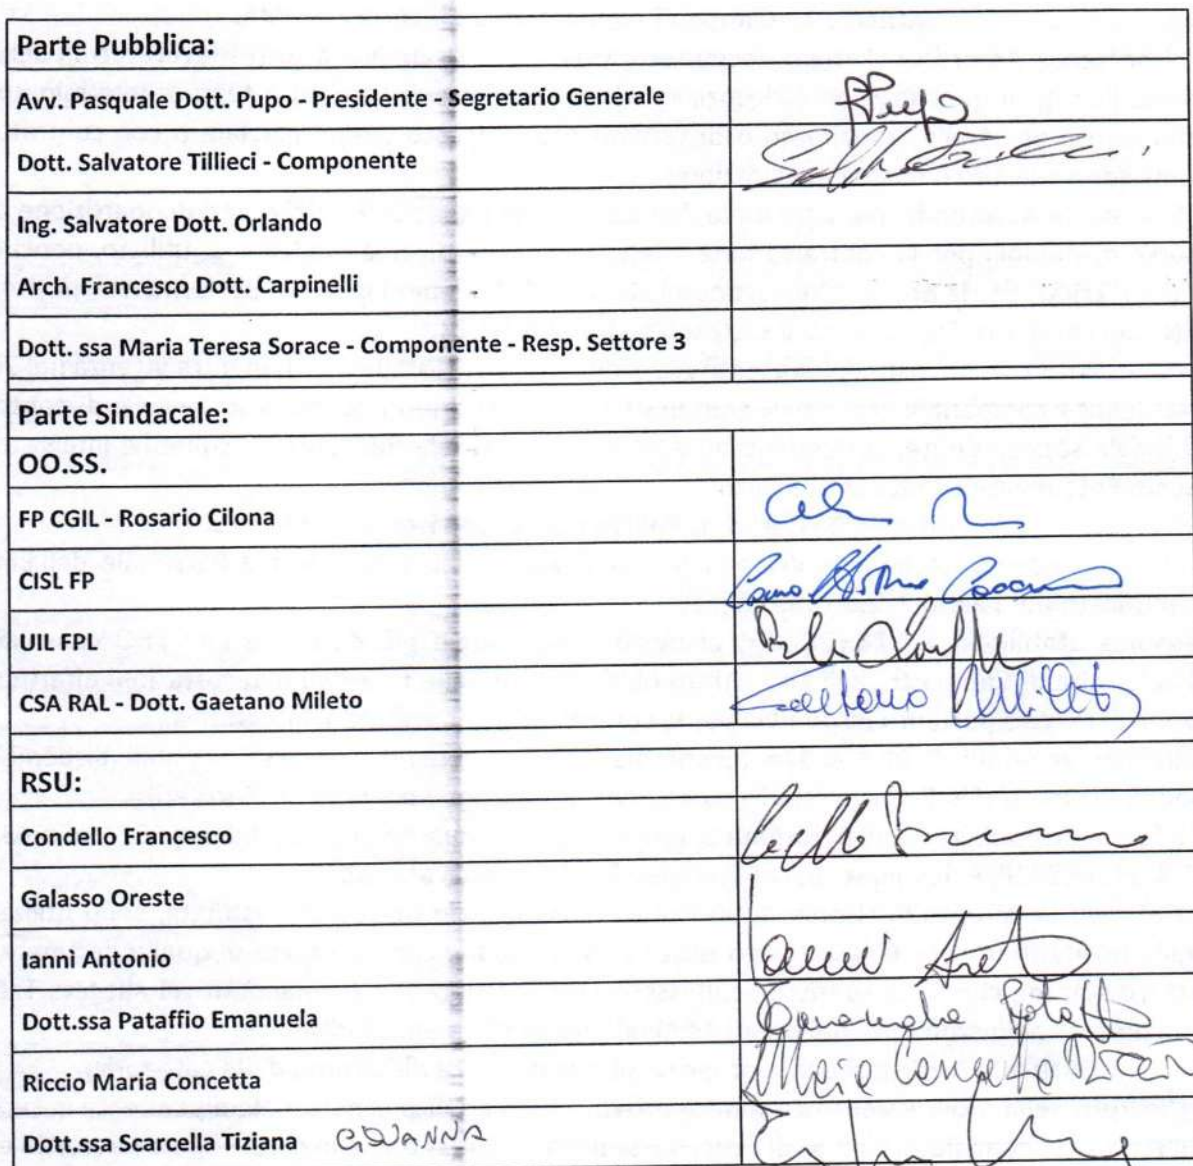 Parte Pubblica:
Avv. Pasquale Dott. Pupo - Presidente - Segretario Generale
Pupo
Dott. Salvatore Tillieci - Componente
Ing. Salvatore Dott. Orlando
Arch. Francesco Dott. Carpinelli
Dott. ssa Maria Teresa Sorace - Componente - Resp. Settore 3
Parte Sindacale:
OO.SS.
FP CGIL - Rosario Cilona
CISL FP
UIL FPL
CSA RAL - Dott. Gaetano Mileto Gaetano Mileto
RSU:
Condello Francesco
Galasso Oreste
Ianni Antonio
Dott.ssa Pataffio Emanuela Emanuela Pataffio
Riccio Maria Concetta Maria Concetta
Dott.ssa Scarcella Tiziana GIOVANNA